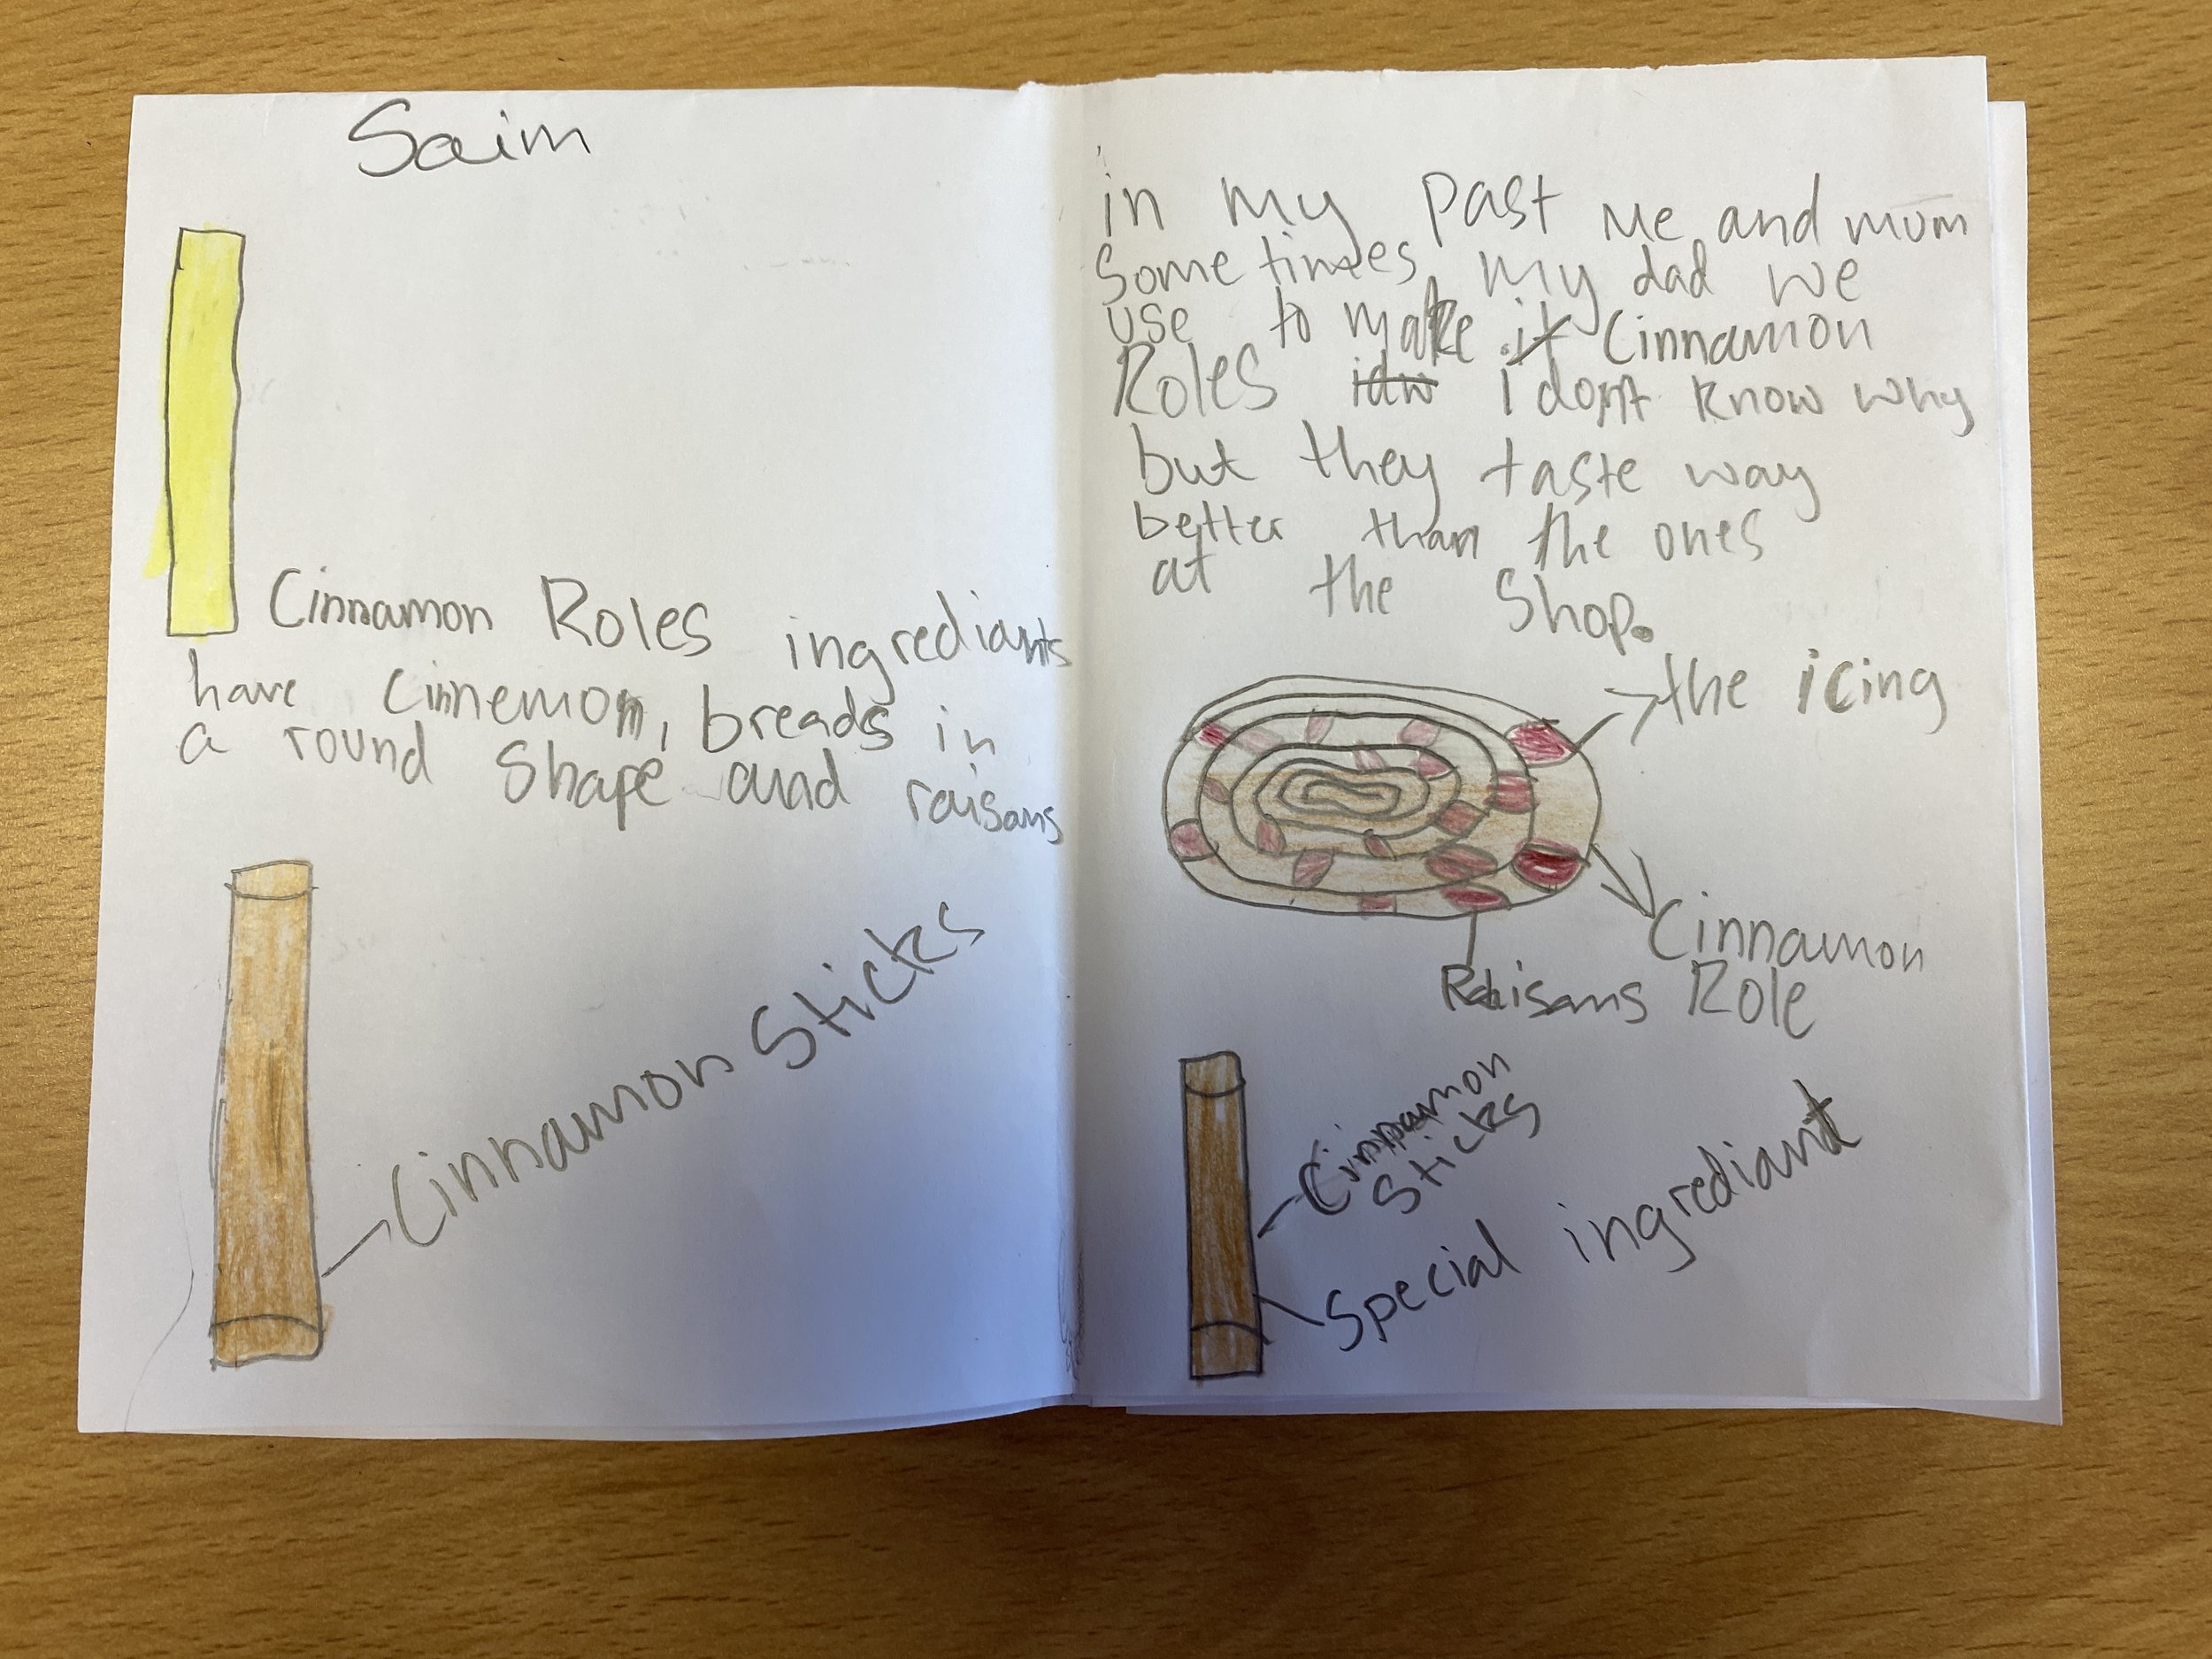 Saim
Cinnamon Roles ingrediants
have cinnemon, breads in
a round Shape and raisans
Cinnamon Sticks
in my past me and mum
Sometimes my dad we
use to make it Cinnamon
Roles idw i dont know why
but they taste way
better than the ones
at the Shop.
the icing
Cinnamon
Role
Raisans
Cinnamon
Sticks
Special ingrediant